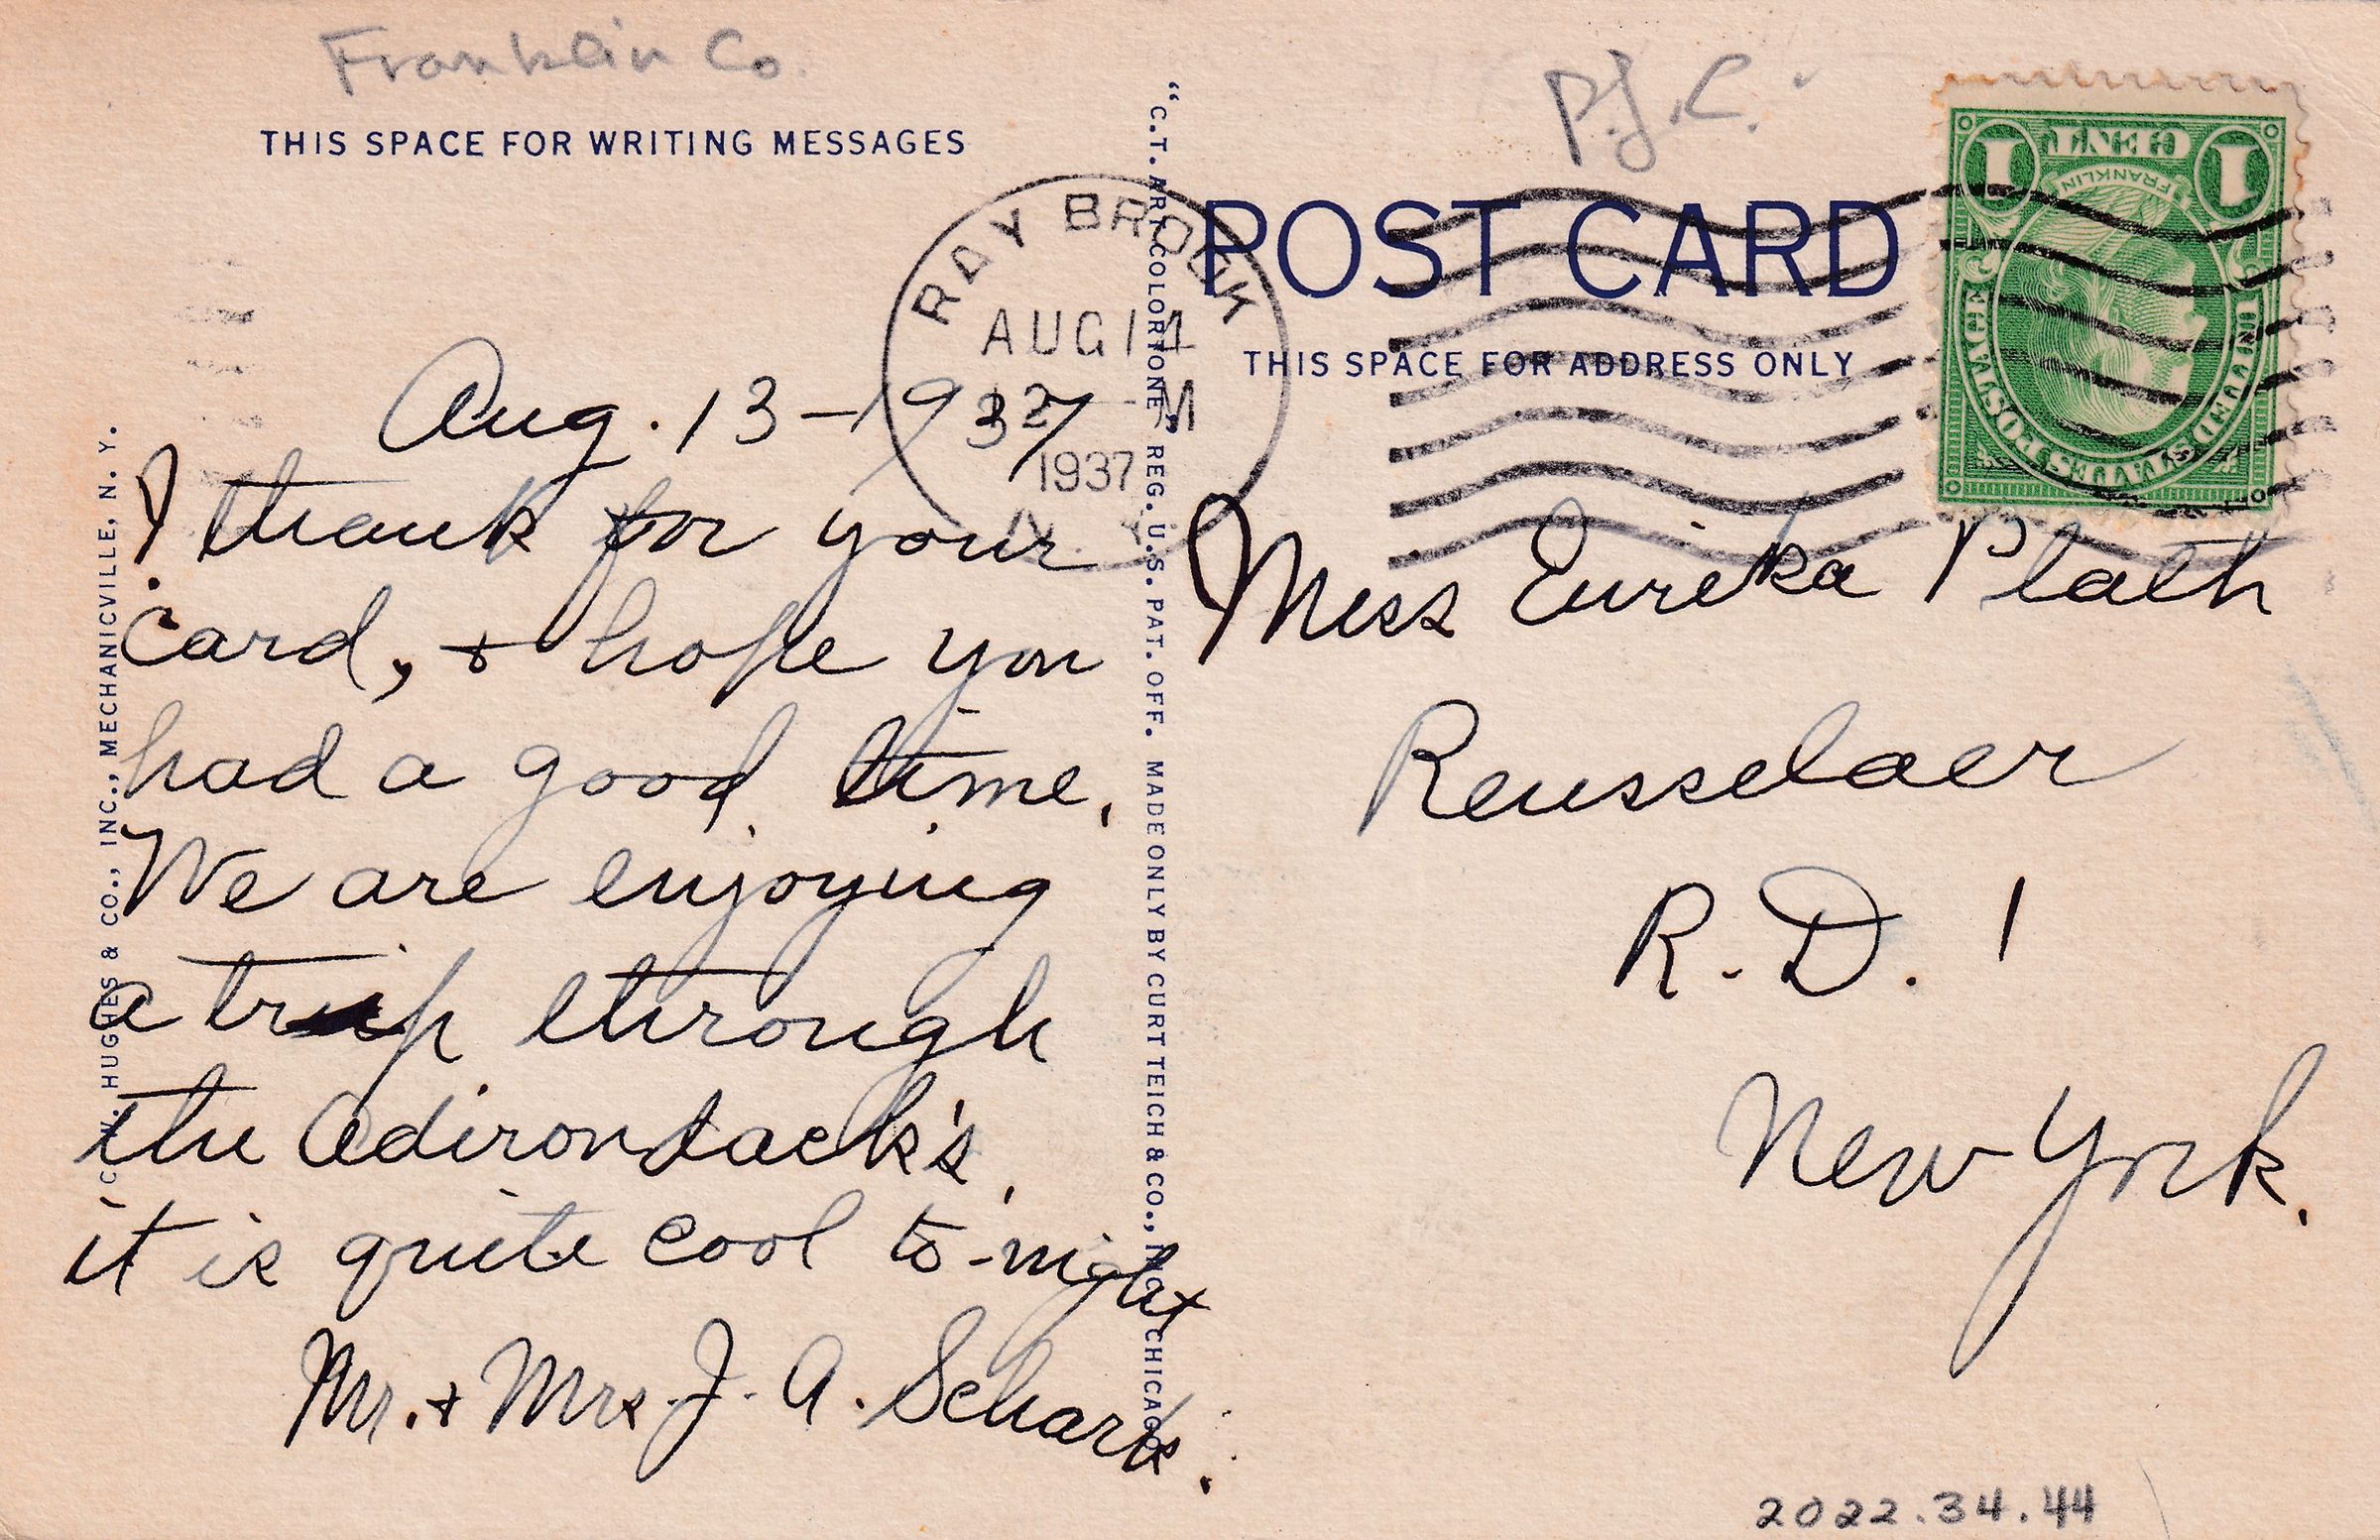 Franklin Co.
P.J.C.
THIS SPACE FOR WRITING MESSAGES
POST CARD
THIS SPACE FOR ADDRESS ONLY
RAY BROOK
AUG 14
M
1937
N. Y.
1 CENT 1
FRANKLIN
UNITED STATES POSTAGE
Aug. 13-1937
I thank for your
card, + hope you
had a good time.
We are enjoying
a trip through
the Adirondack's,
it is quite cool to-night
Mr. + Mrs. J. A. Schark.
Miss Eureka Plath
Rensselaer
R.D. 1
New York.
C. W. HUGHES & CO., INC., MECHANICVILLE, N. Y.
"C.T. ART COLORTONE" REG. U.S. PAT. OFF. MADE ONLY BY CURT TEICH & CO., INC., CHICAGO
2022.34.44